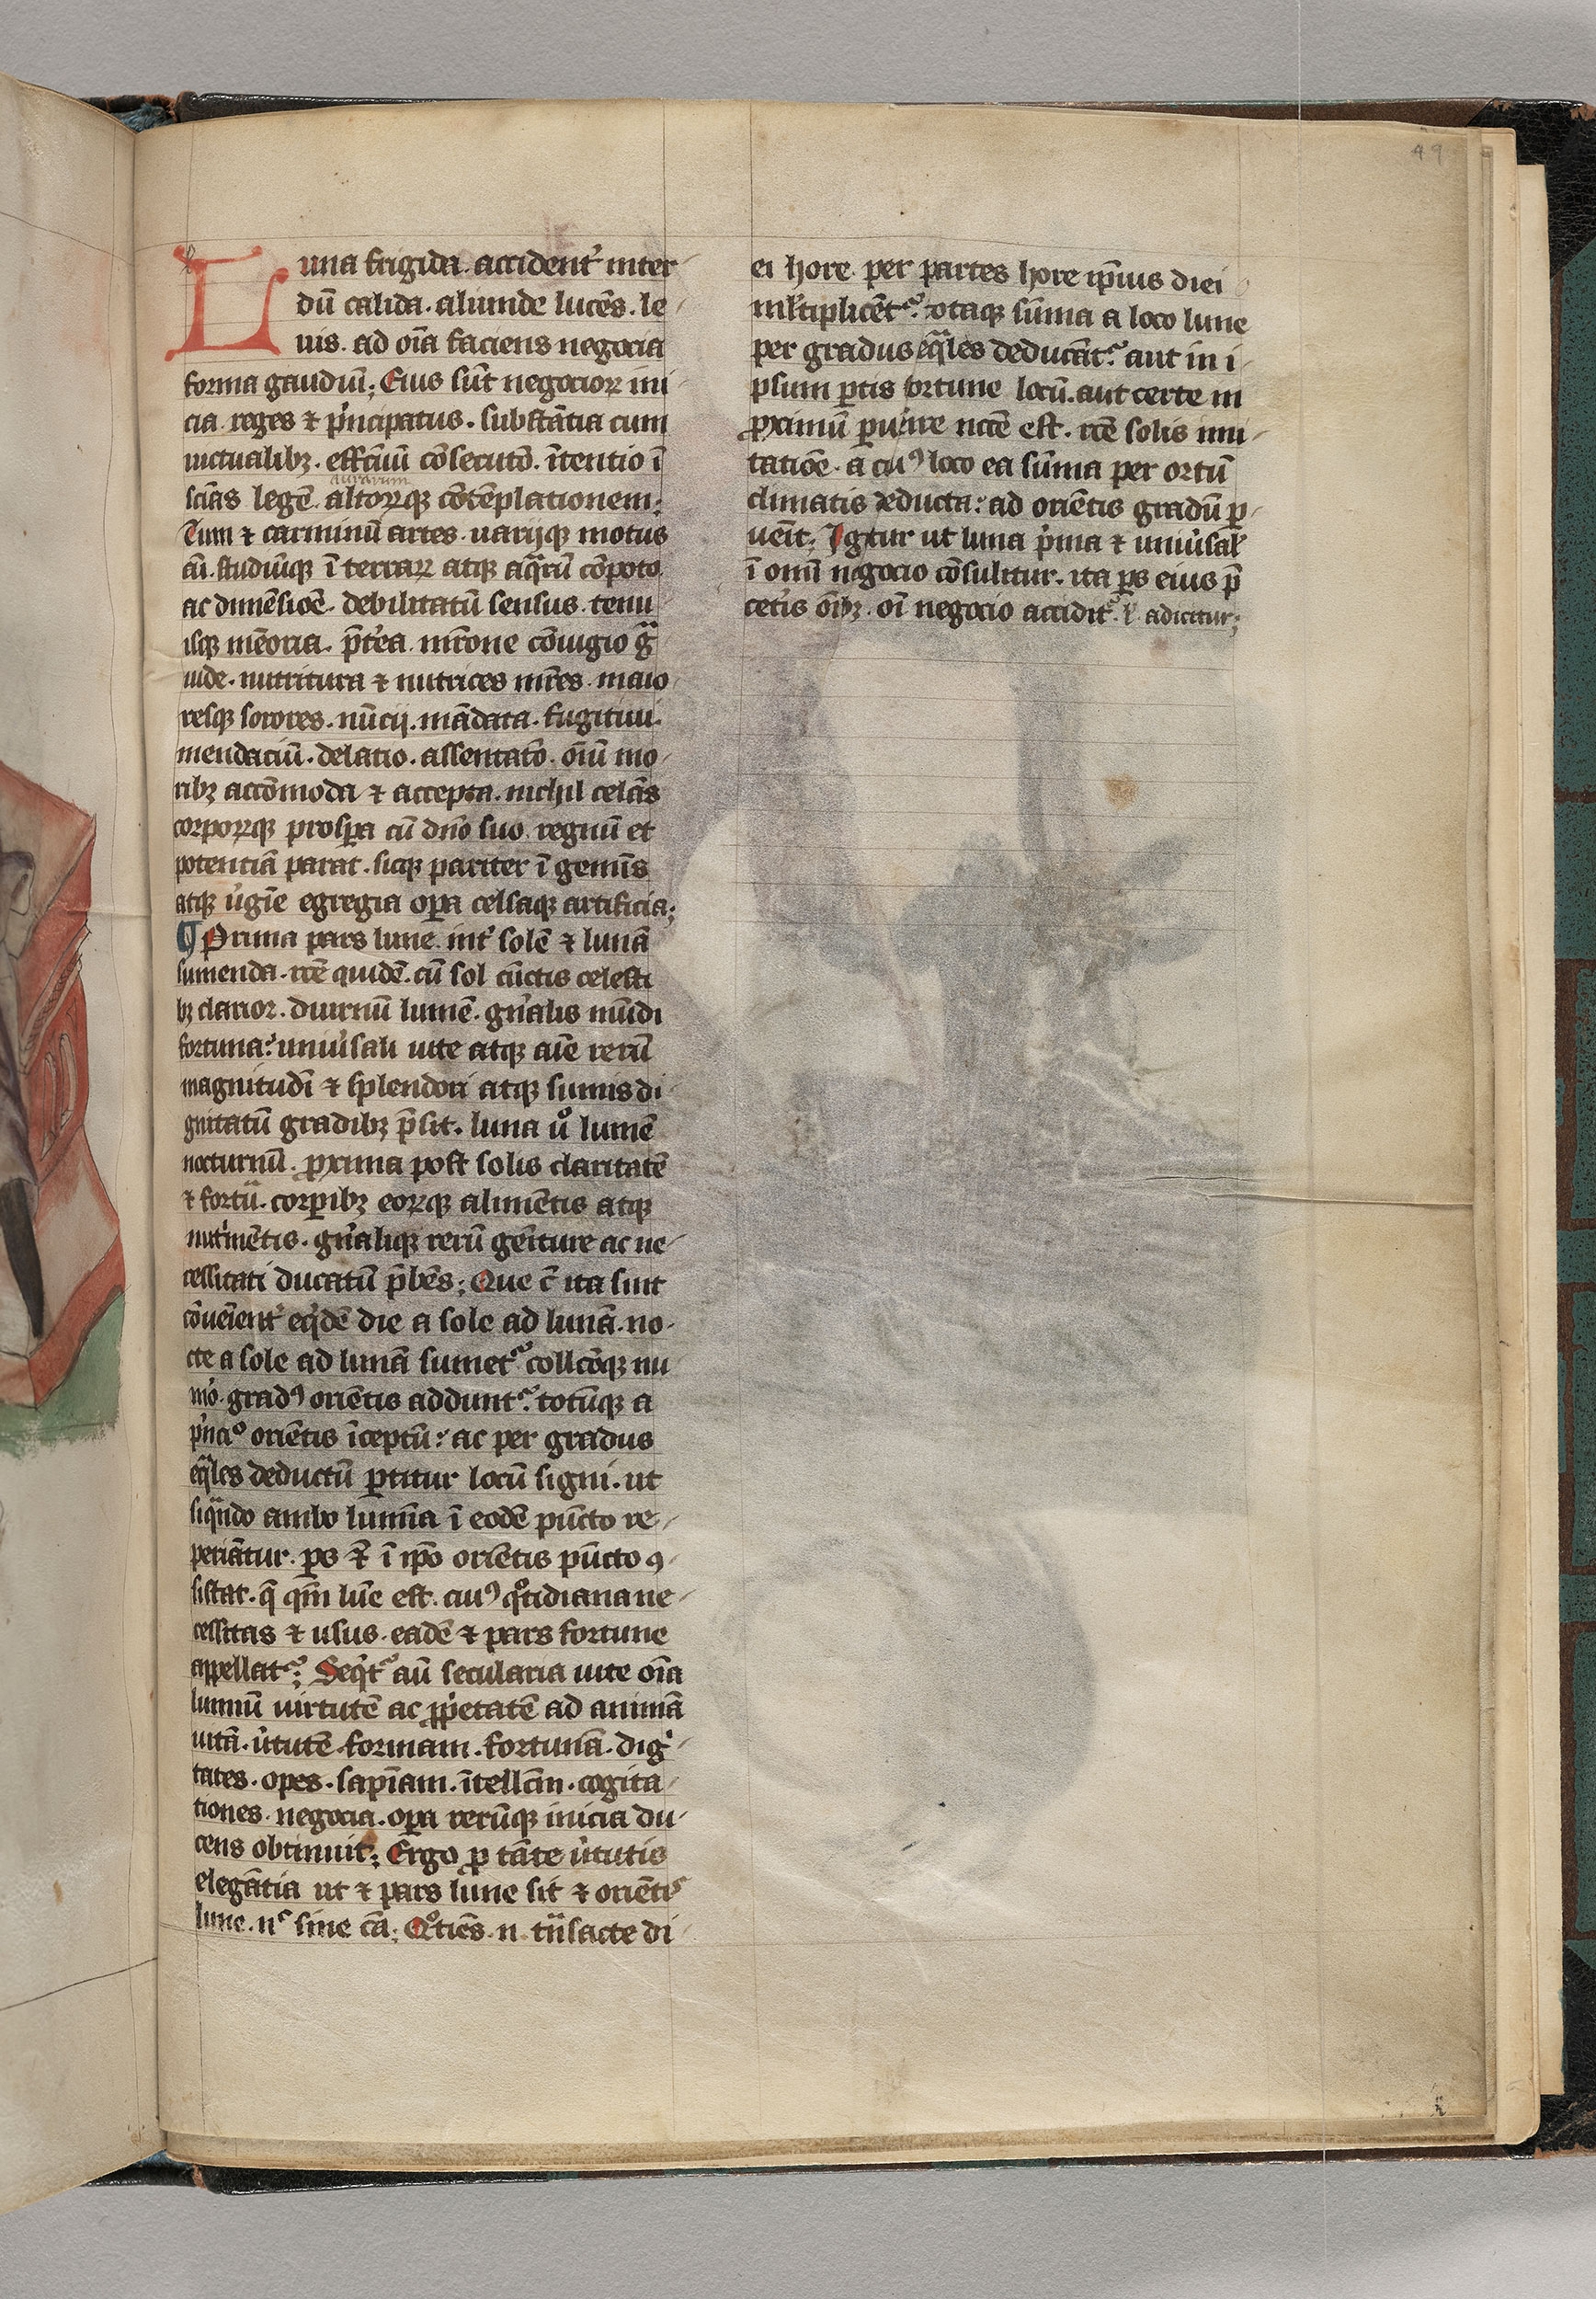 49
Luna frigida. accident̉ inter
dū calida. aliunde lucēs. le
uis. ad oīa faciens negocia
forma gaudiū; Eius sūt negocioꝝ ini
cia reges ⁊ p̉ncipatus. substātia cum
uictualibꝫ. effcīuū cōsecutō. ītentio ī
aurarum
scīas legē. altoꝝqꝫ cōtēplationem;
Tum ⁊ carminū artes. uarijqꝫ motus
aī. studiūqꝫ ī terraꝝ atqꝫ aq̄rū cōpoto
ac dimēsiōē. debilitatū sensus. tenu
isqꝫ mēoria. p̄t̉ea. mr̄one cōiugio gͣ
uide. nutritura ⁊ nutrices mr̄es. maio
resqꝫ sorores. nūcij. mādata. fugitiui.
mendaciū. delatio. assentatō. oīū mo
ribꝫ accōmoda ⁊ accepta. nichil celās
corpoꝝqꝫ prosꝑa cū dn̄o suo. regnū et
potentiā parat. sicqꝫ pariter ī geniis
atqꝫ ůgīe egregia oꝑa celsaqꝫ artificia;
¶ Prima pars lune. int̉ solē ⁊ lunā
sumenda. rōē quidē. cū sol cūctis celesti
bꝫ clarior. diurnū lumē. gn̄alis mūdi
fortuna: uniůsali uite atqꝫ aīe rerū
magnitudī ⁊ splendori atqꝫ sumis di
gnitatū gradibꝫ p̄sit. luna uͦ lumē
nocturnū. ꝓxima post solis claritatē
⁊ fortūͣ. corꝑibꝫ eoꝝqꝫ alimētis atqꝫ
nut̉mētis. gn̄aliqꝫ rerū geīture ac ne
cessitati ducatū p̄bēs; Que c̄ ita sint
cōueīent̉ eq̉dē die a sole ad lunā. no
cte a sole ad lunā sumet᷑ collcōqꝫ nu
m̉o. gradꝰ oriētis addunt᷑. totūqꝫ a
p̉nciͦ oriētis īceptū: ac per gradus
eq̄les deductū ꝑtitur locū signi. ut
siqͣndo ambo lumīa ī eodē pūcto re
periātur. ps ⁊̄ ī ip̄o oriētis pūcto ꝯ
sistat. q̄ qm̄ lūe est. cuiꝰ qͦtidiana ne
cessitas ⁊ usus. eadē ⁊ pars fortune
appellat᷑; Seq̉t᷑ aū secularia uite oīa
luminū uirtutē ac ꝓp̉etatē ad animā
uitā. ůtutē formam. fortunā. dig̉
tates. opes. sapīam. ītellcm̄. cogita
tiones. negocia. oꝑa rerūqꝫ inicia du
cens obtinuit; Ergo ꝓ tāte ůtutis
elegātia ut ⁊ pars lune sit ⁊ oriētis
lune. n᷑ sine cā; Qͦtiēs. n. tn̄sacte di
ei hore per partes hore ip̄ius diei
ml̄tiplicēt᷑. totaqꝫ sūma a loco lune
per gradus eq̄les deducāt᷑. aut in i
psum ꝑtis fortune locū. aut certe in
ꝓximū ꝑuēire nccē est. rōē solis mu
tatiōē. a cuiꝰ loco ea sūma per ortū
climatis deducta: ad oriētis gradū ꝑ
ueīt; Igitur ut luna p̉ma ⁊ uniůsal̕
ī omī negocio cōsulitur. ita ps eius p̄
cet̉is oībꝫ. oī negocio accidit᷑. ł adicitur;